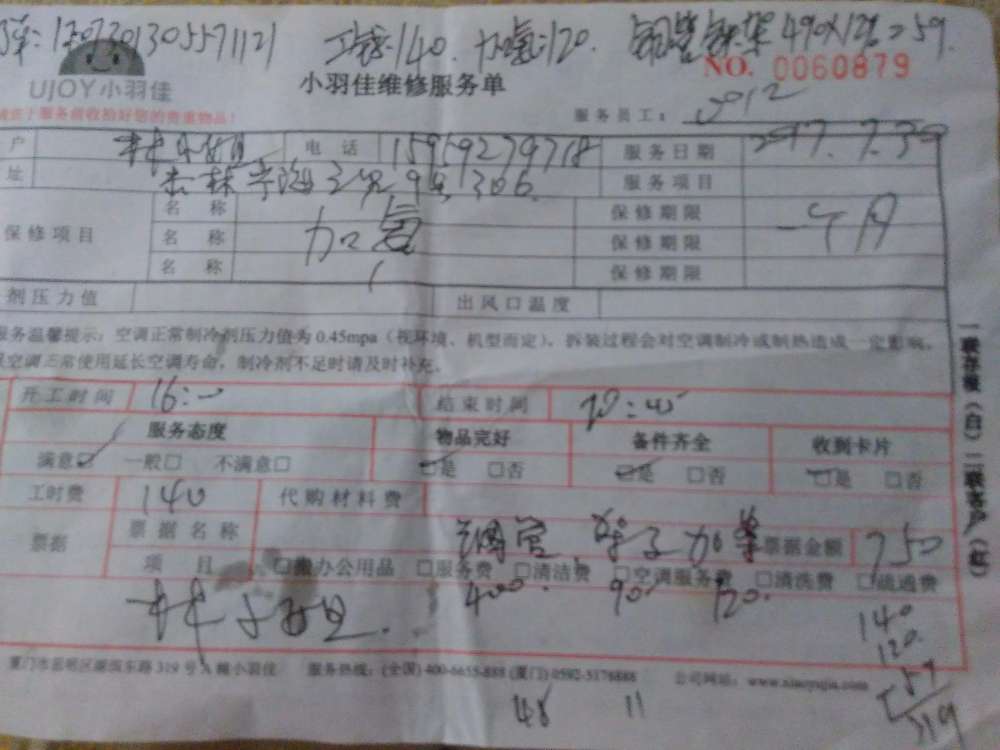 单:170730130557121 工钱:140. 加氟:120. 铜管 490×12%=59.
NO. 0060879
UJOY小羽佳 小羽佳维修服务单
于服务前收拾好您的贵重物品! 服务员工:
户 林小姐 电话 15959279718 服务日期 2017.7.30
址 306. 服务项目
名称 保修期限
保修项目 名称 加氟 保修期限 一个月
名称 保修期限
剂压力值 出风口温度
服务温馨提示:空调正常制冷剂压力值为0.45mpa(视环境、机型而定),拆装过程会对空调制冷或制热造成一定影响,
空调正常使用延长空调寿命,制冷剂不足时请及时补充。
开工时间 16: 结束时间
服务态度 物品完好 备件齐全 收到卡片
满意☑ 一般□ 不满意□ ☑是 □否 ☑是 □否 ☑是 □否
工时费 140 代购材料费
票据 票据名称 铜管 架子 加氟 票据金额 750
项目 □办公用品 □服务费 □清洁费 □空调服务费 □清洗费 □疏通费
400. 90 120.
林小姐. 140
120.
59
319
厦门市思明区湖滨东路319号A幢小羽佳 服务热线:(全国)400-6655-888(厦门)0592-5176888 公司网站:www.xiaoyujia.com
48 11
一联存根(白)二联客户(红)